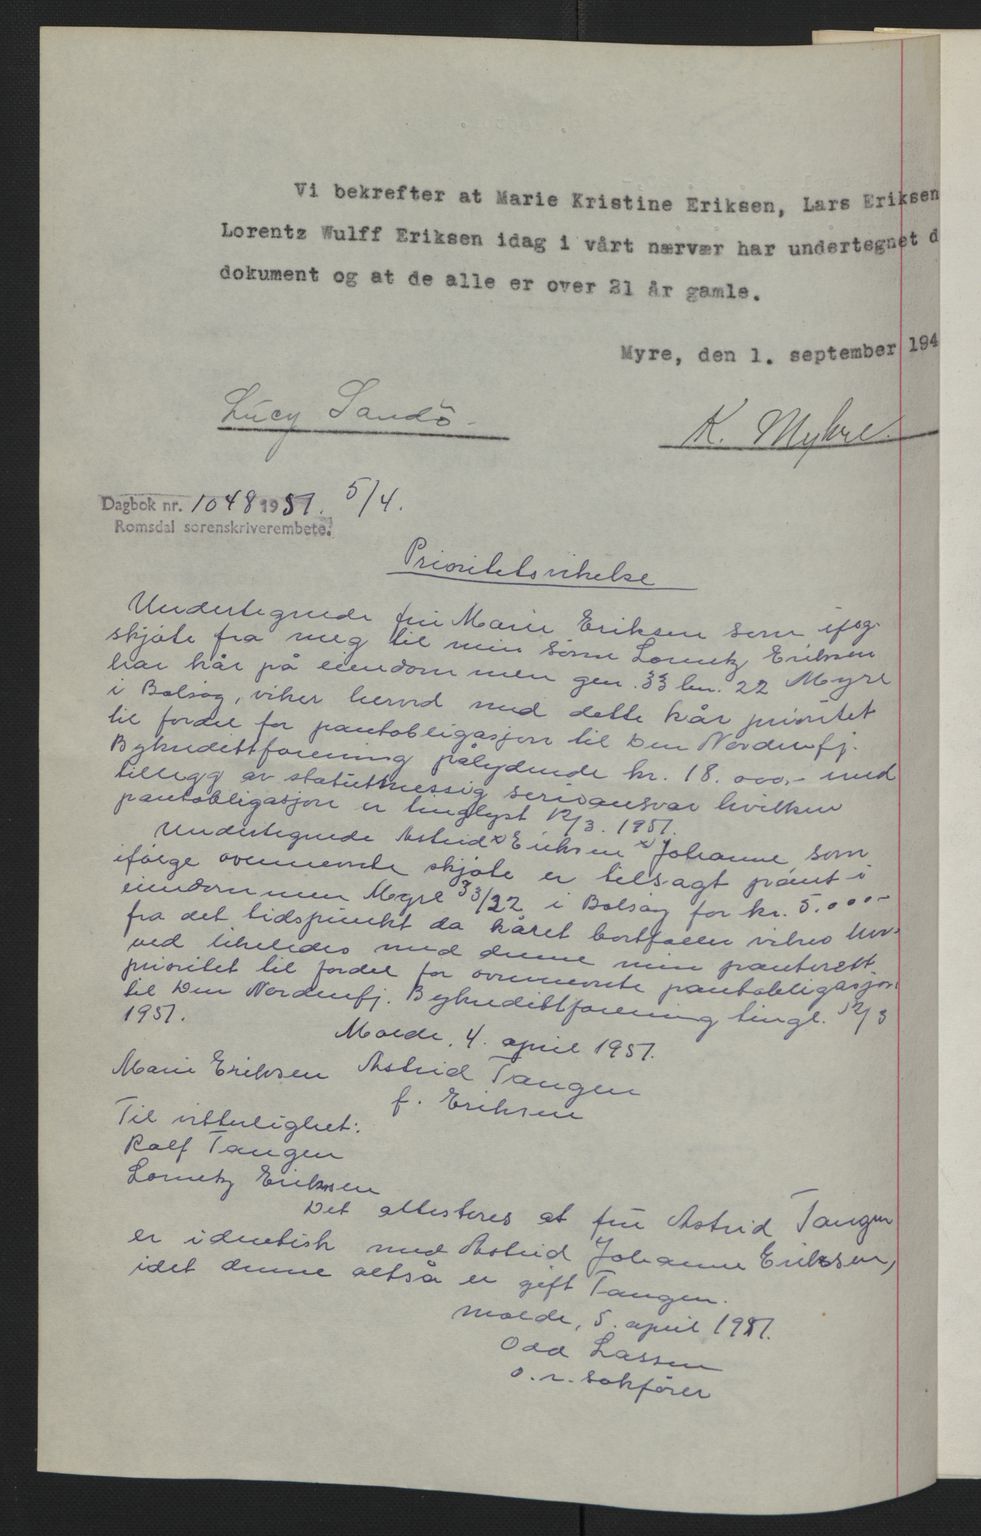 Vi bekrefter at Marie Kristine Eriksen, Lars Eriksen
Lorentz Wulff Eriksen idag i vårt nærvær har undertegnet d
dokument og at de alle er over 21 år gamle.
Myre, den 1. september 194
Lucy Sandö
K. Myhre.
Dagbok nr. 1048 1951. 5/4.
Romsdal sorenskriverembete.
Prioritetsvikelse
Undertegnede fru Marie Eriksen som iføg.
skjøte fra meg til min sønn Lorentz Eriksen
har kår på eiendommen gnr. 33 bn. 22 Myre
i Bolsøy, viker herved med dette kår prioritet
til fordel for pantobligasjon til Den Nordenfj.
Bykredittforening pålydende kr. 18.000,- med
tillegg av statutmessig seriøansvar hvilken
pantobligasjon er tinglyst 12/3. 1951.
Undertegnede Astrid x) Eriksen x) Johanne som
ifølge ovennevnte skjøte er tilsagt pant i
eiendommen Myre 33/22 i Bolsøy for kr. 5.000-
fra det tidspunkt da kåret bortfaller vikes her-
ved likeledes med denne min panterett
prioritet til fordel for ovennevnte pantobligasjon
til Den Nordenfj. Bykredittforening tingl. 12/3
1951.
Molde, 4. april 1951.
Marie Eriksen Astrid Tangen
f. Eriksen
Til vitterlighet:
Rolf Tangen
Lorentz Eriksen
Det attesteres at fru Astrid Tangen
er identisk med Astrid Johanne Eriksen,
idet denne altså er gift Tangen.
Molde, 5. april 1951.
Odd Lassen
o.r.sakfører